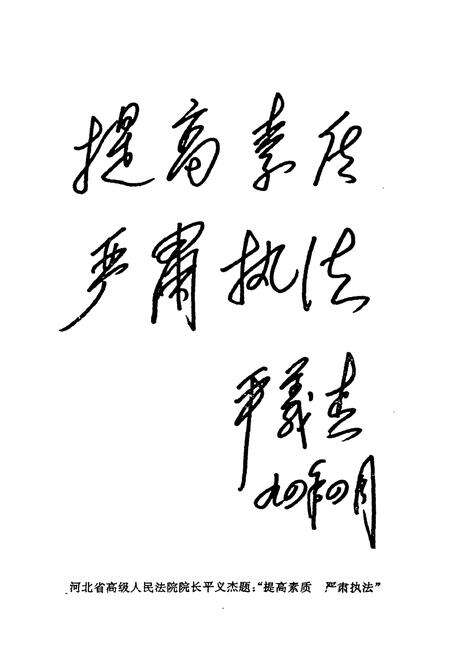 提高素质
严肃执法
平義杰
九四年四月
河北省高级人民法院院长平义杰题：“提高素质　严肃执法”